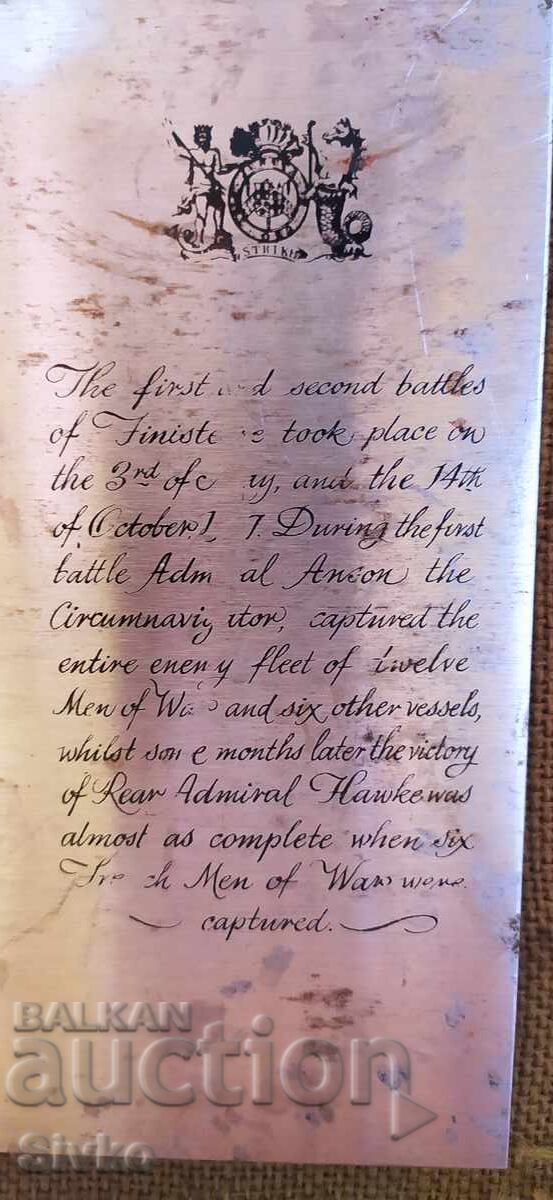 STRIKE
The first and second battles
of Finisterre took place on
the 3rd of and the 14th
of October During the first
battle Admiral Anson the
Circumnavigator, captured the
entire enemy fleet of twelve
Men of War and six other vessels,
whilst some months later the victory
of Rear Admiral Hawke was
almost as complete when six
French Men of War were
captured.
BALKAN
auction
Sivko